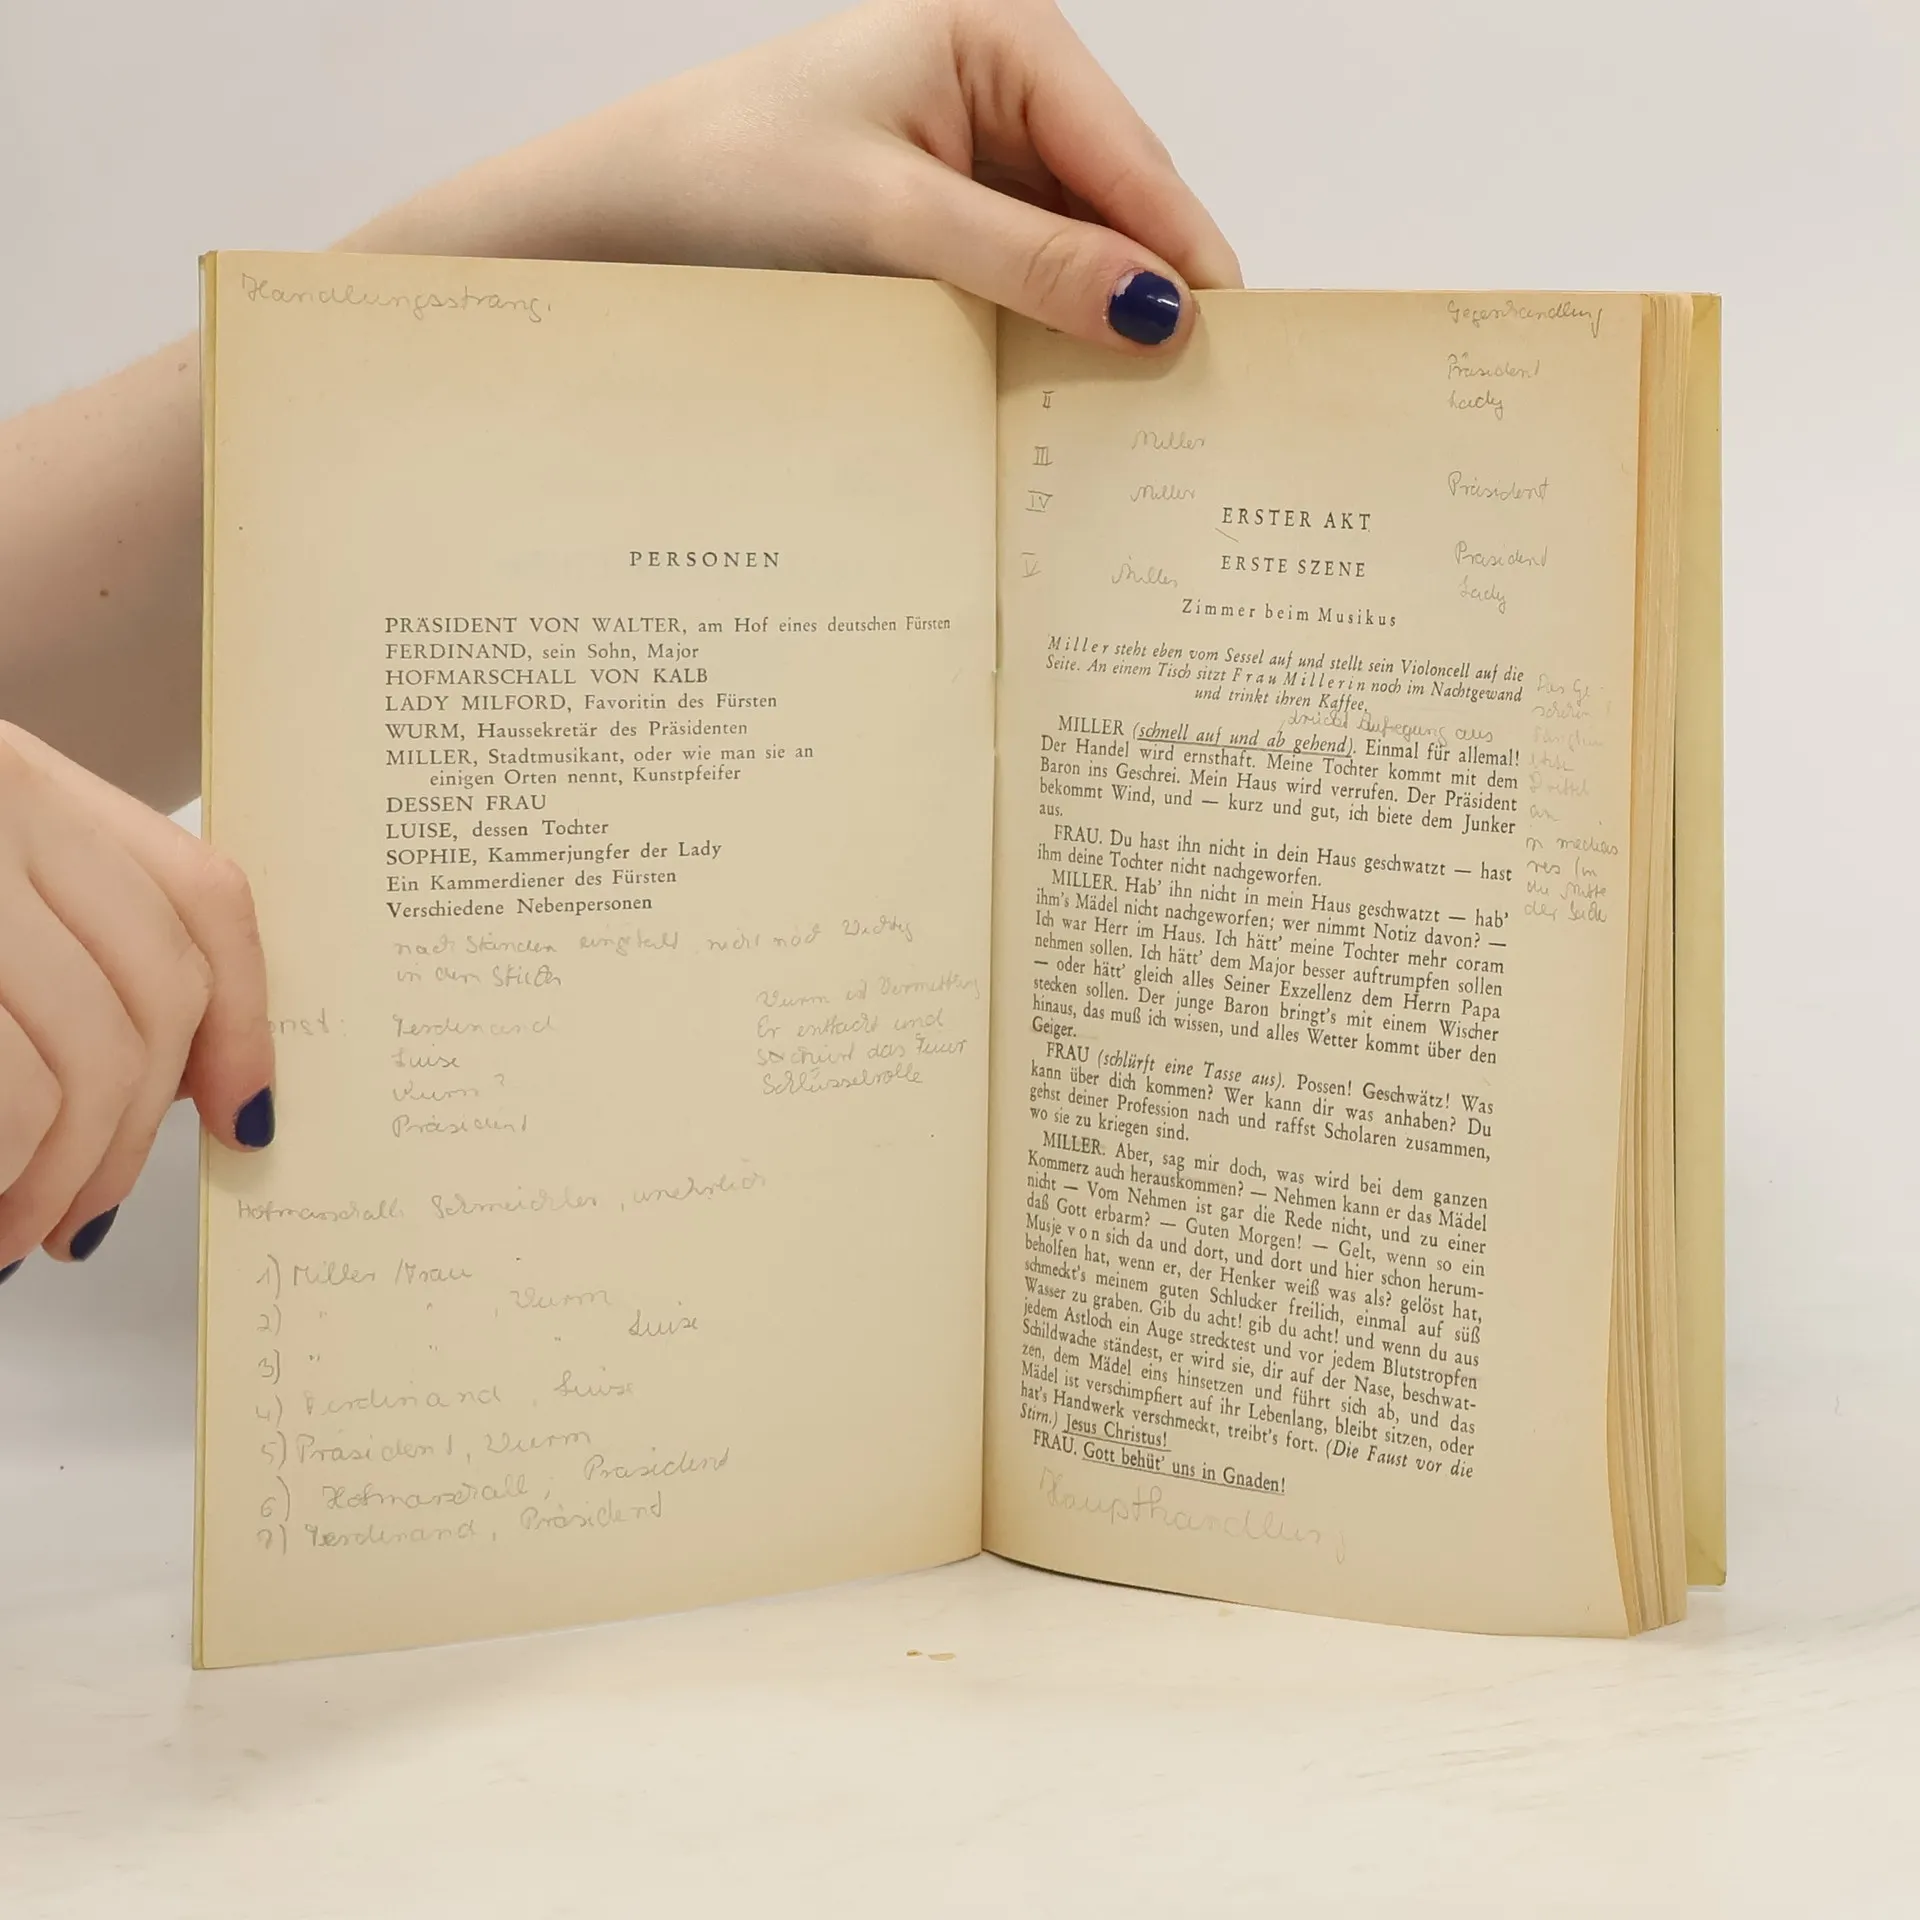 Handlungsstrang.
PERSONEN
PRÄSIDENT VON WALTER, am Hof eines deutschen Fürsten
FERDINAND, sein Sohn, Major
HOFMARSCHALL VON KALB
LADY MILFORD, Favoritin des Fürsten
WURM, Haussekretär des Präsidenten
MILLER, Stadtmusikant, oder wie man sie an
einigen Orten nennt, Kunstpfeifer
DESSEN FRAU
LUISE, dessen Tochter
SOPHIE, Kammerjungfer der Lady
Ein Kammerdiener des Fürsten
Verschiedene Nebenpersonen
nach Ständen eingeteilt nicht nach
in dem
Wurm ist
Er entfacht und
schürt das Feuer
Schlüsselrolle
Ferdinand
Luise
Wurm ?
Präsident
Hofmarschall: Schmeichler, unehrlich
1) Miller / Frau
2) " " , Wurm
3) " " " Luise
4) Ferdinand, Luise
5) Präsident, Wurm
6) Hofmarschall; Präsident
7) Ferdinand, Präsident
Gegenhandlung
Präsident
II Lady
III Miller
IV Miller Präsident
V Miller Präsident
Lady
ERSTER AKT
ERSTE SZENE
Zimmer beim Musikus
Miller steht eben vom Sessel auf und stellt sein Violoncell auf die
Seite. An einem Tisch sitzt Frau Millerin noch im Nachtgewand
und trinkt ihren Kaffee.
drückt Aufregung aus
MILLER (schnell auf und ab gehend). Einmal für allemal!
Der Handel wird ernsthaft. Meine Tochter kommt mit dem
Baron ins Geschrei. Mein Haus wird verrufen. Der Präsident
bekommt Wind, und — kurz und gut, ich biete dem Junker
aus.
FRAU. Du hast ihn nicht in dein Haus geschwatzt — hast
ihm deine Tochter nicht nachgeworfen.
MILLER. Hab' ihn nicht in mein Haus geschwatzt — hab'
ihm's Mädel nicht nachgeworfen; wer nimmt Notiz davon? —
Ich war Herr im Haus. Ich hätt' meine Tochter mehr coram
nehmen sollen. Ich hätt' dem Major besser auftrumpfen sollen
— oder hätt' gleich alles Seiner Exzellenz dem Herrn Papa
stecken sollen. Der junge Baron bringt's mit einem Wischer
hinaus, das muß ich wissen, und alles Wetter kommt über den
Geiger.
FRAU (schlürft eine Tasse aus). Possen! Geschwätz! Was
kann über dich kommen? Wer kann dir was anhaben? Du
gehst deiner Profession nach und raffst Scholaren zusammen,
wo sie zu kriegen sind.
MILLER. Aber, sag mir doch, was wird bei dem ganzen
Kommerz auch herauskommen? — Nehmen kann er das Mädel
nicht — Vom Nehmen ist gar die Rede nicht, und zu einer
daß Gott erbarm? — Guten Morgen! — Gelt, wenn so ein
Musje von sich da und dort, und dort und hier schon herum-
beholfen hat, wenn er, der Henker weiß was als? gelöst hat,
schmeckt's meinem guten Schlucker freilich, einmal auf süß
Wasser zu graben. Gib du acht! gib du acht! und wenn du aus
jedem Astloch ein Auge strecktest und vor jedem Blutstropfen
Schildwache ständest, er wird sie, dir auf der Nase, beschwat-
zen, dem Mädel eins hinsetzen und führt sich ab, und das
Mädel ist verschimpfiert auf ihr Lebenlang, bleibt sitzen, oder
hat's Handwerk verschmeckt, treibt's fort. (Die Faust vor die
Stirn.) Jesus Christus!
FRAU. Gott behüt' uns in Gnaden!
an
in medias
res (in
die Mitte
der
Haupthandlung